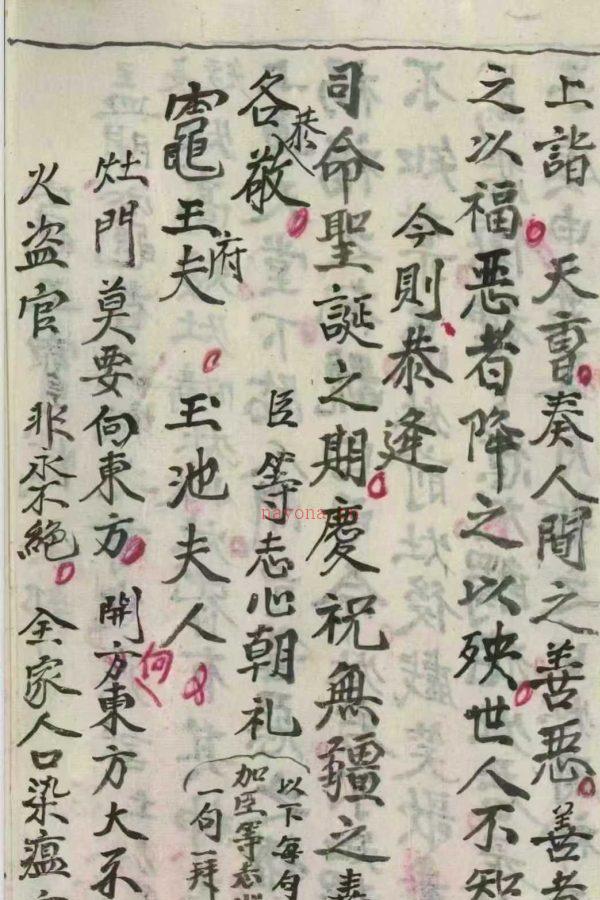 上詣　天曹奏人間之善惡善者
之以福惡者降之以殃世人不知
今則恭逢
司命聖誕之期慶祝無疆之
各恭敬　臣等志心朝礼
以下每句
加臣等志
一句一拜
竈王府夫　玉池夫人
灶門莫要向東方　開方向東方大不
火盗官非永不絕　全家人口染瘟
nayona.cn